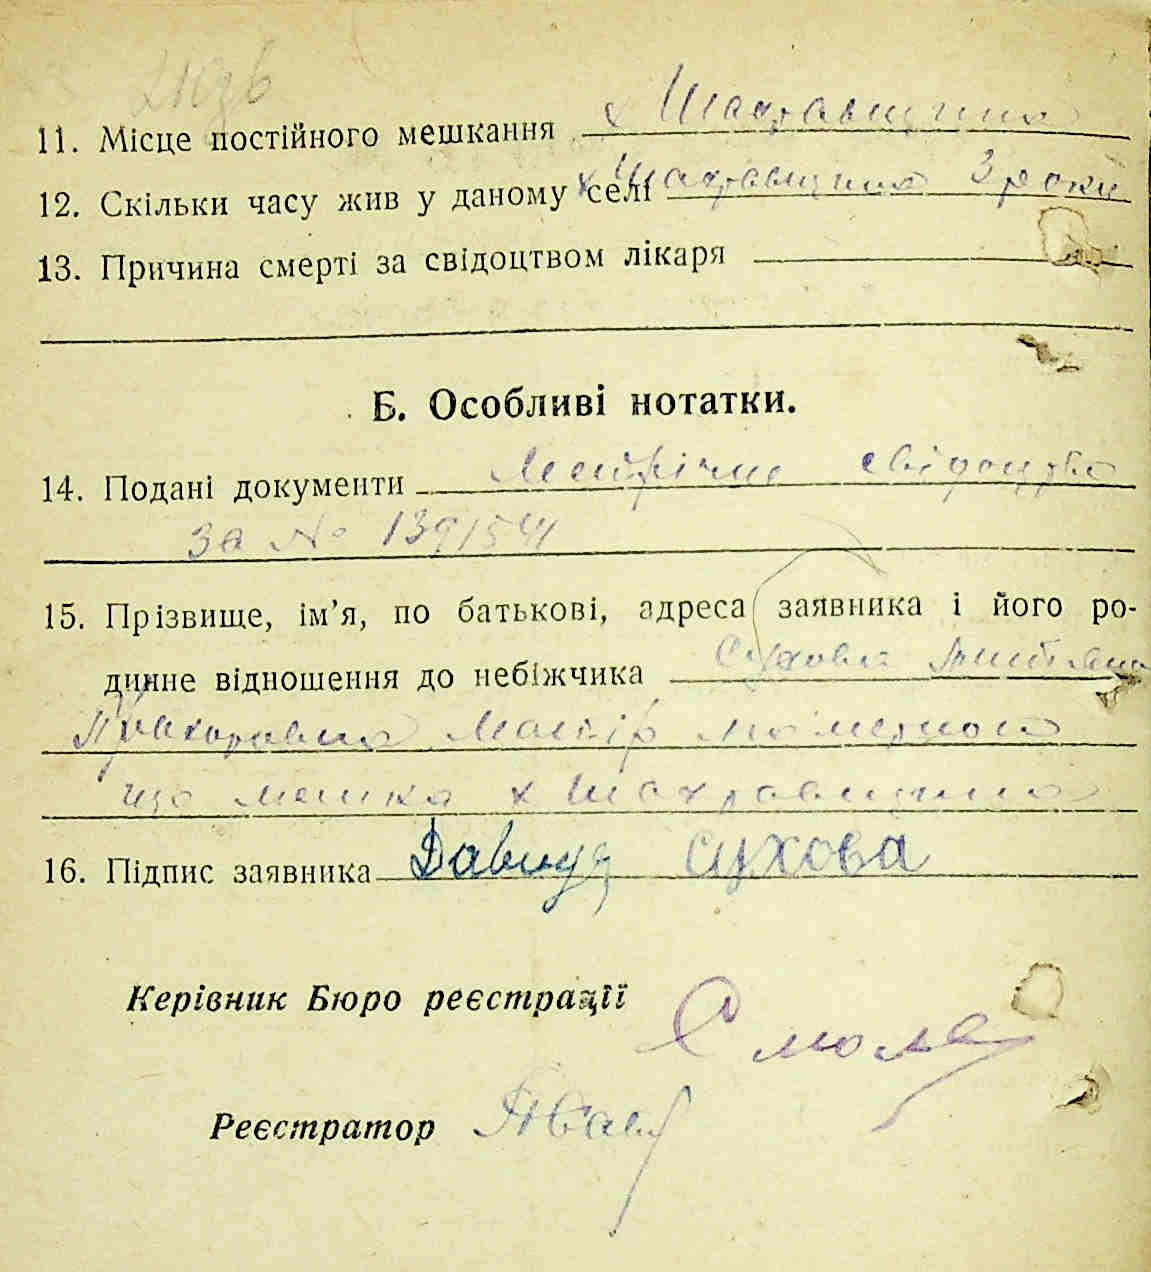 11. Місце постійного мешкання х Шахравщина
12. Скільки часу жив у даному селі х Шахравщина 3 роки
13. Причина смерті за свідоцтвом лікаря
Б. Особливі нотатки.
14. Подані документи Метрічне свідоцтво
за № 139154
15. Прізвище, ім’я, по батькові, адреса заявника і його ро-
динне відношення до небіжчика Сухова
Прихоровна Матір померлого
що мешка х Шахравщина
16. Підпис заявника Давид Сухова
Керівник Бюро реєстрації Смола
Реєстратор